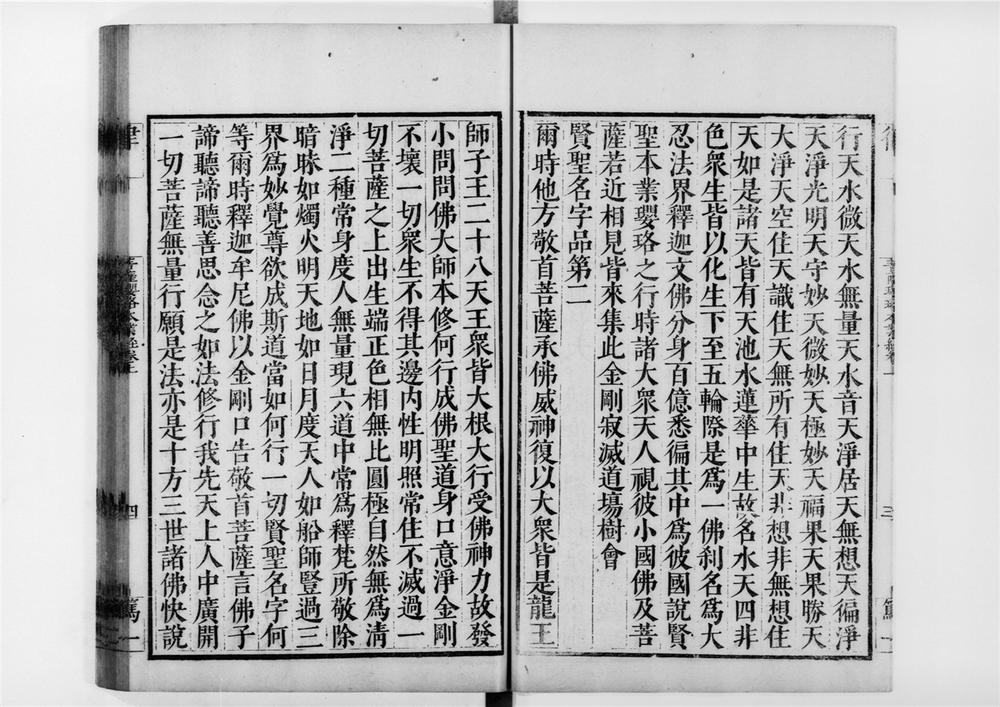 行天水微天水無量天水音天淨居天無想天徧淨
天淨光明天守妙天微妙天極妙天福果天果勝天
大淨天空住天識住天無所有住天非想非無想住
天如是諸天皆有天池水蓮華中生故名水天四非
色衆生皆以化生下至五輪際是爲一佛刹名爲大
忍法界釋迦文佛分身百億悉徧其中爲彼國說賢
聖本業瓔珞之行時諸大衆天人視彼小國佛及菩
薩若近相見皆來集此金剛寂滅道場樹會
賢聖名字品第二
爾時他方敬首菩薩承佛威神復以大衆皆是龍王
三
篤一
師子王二十八天王衆皆大根大行受佛神力故發
小問問佛大師本修何行成佛聖道身口意淨金剛
不壞一切衆生不得其邊內性明照常住不滅過一
切菩薩之上出生端正色相無比圓極自然無爲淸
淨二種常身度人無量現六道中常爲釋梵所敬除
暗昧如燭火明天地如日月度天人如船師豎過三
界爲妙覺尊欲成斯道當如何行一切賢聖名字何
等爾時釋迦牟尼佛以金剛口告敬首菩薩言佛子
諦聽諦聽善思念之如法修行我先天上人中廣開
一切菩薩無量行願是法亦是十方三世諸佛快說
律
四
篤一